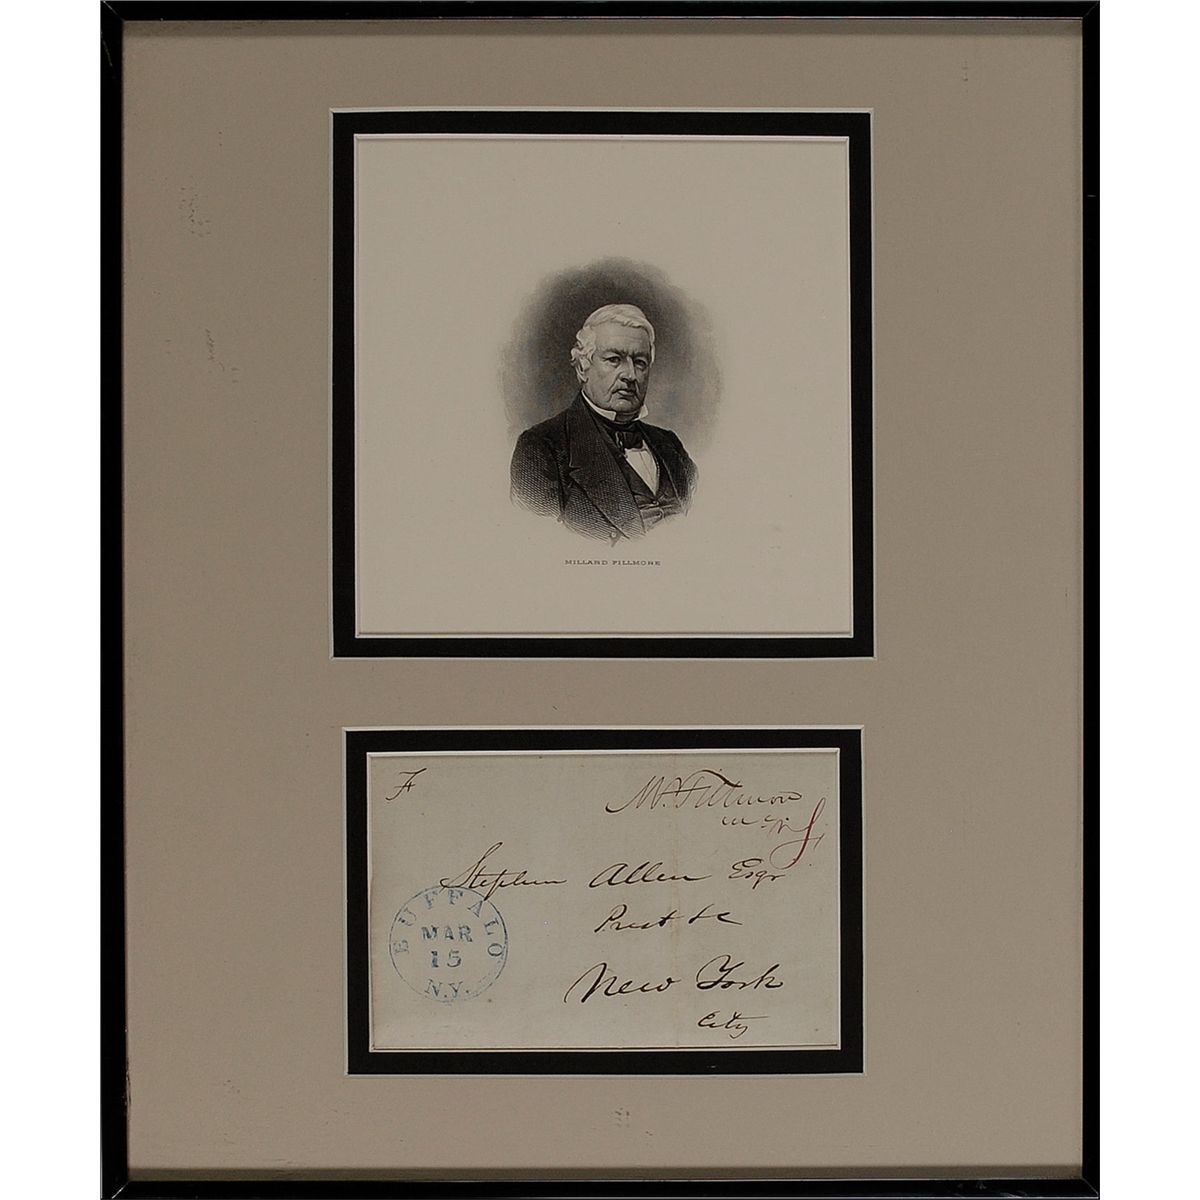 MILLARD FILLMORE
F
M. Fillmore
M.C.
Stephen Allen Esqr
Prest &c
New York
City
BUFFALO
MAR
15
N.Y.